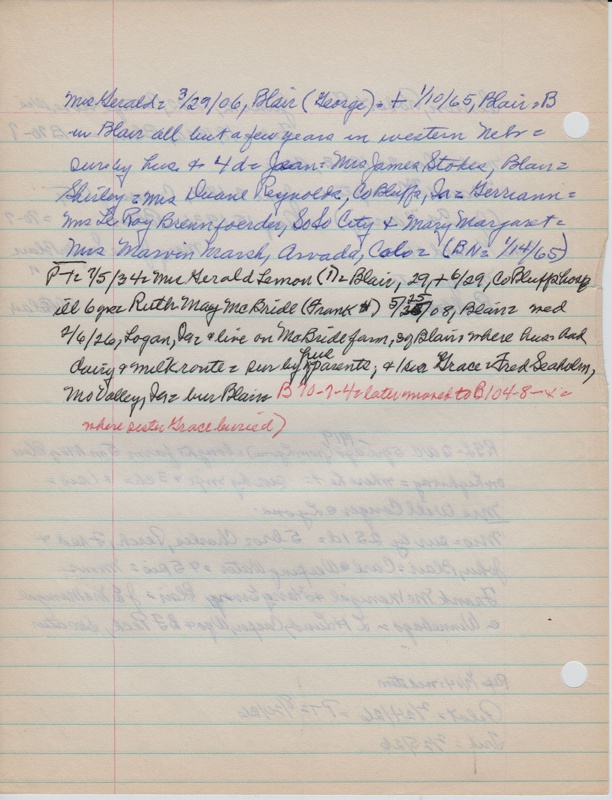 Mrs Gerald = 3/29/06, Blair (George) = + 1/10/65, Blair = B
in Blair all but a few years in western Nebr =
sur by hus. + 4 d = Jean = Mrs James Stokes, Blair =
Shirley = Mrs Duane Reynolds, Co Bluffs, Ia = Gerriann =
Mrs Le Roy Brennfoerder, So So City + Mary Margaret =
Mrs Marvin Marsh, Arvada, Colo = (BN = 1/14/65)
PT = 7/5/34 = Mrs Gerald Lemon (1) = Blair, 29, + 6/29, Co Bluffs hosp
ill 6 yrs = Ruth May McBride (Frank) 5/25/08, Blair = wed
2/6/26, Logan, Ia = + live on McBride farm, Blair where hus had
dairy + milk route = sur by hus parents, + 1 sis Grace = Fred Seaholm,
Mo Valley, Ia = bur Blair = B 70-7-4 = later moved to B 104-8-4 =
where sister Grace buried)